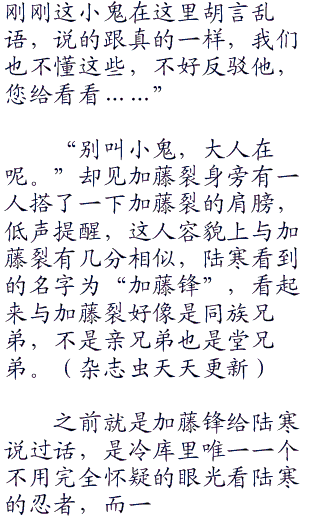 刚刚这小鬼在这里胡言乱
语，说的跟真的一样，我们
也不懂这些，不好反驳他，
您给看看……”
“别叫小鬼，大人在
呢。”却见加藤裂身旁有一
人搭了一下加藤裂的肩膀，
低声提醒，这人容貌上与加
藤裂有几分相似，陆寒看到
的名字为“加藤锋”，看起
来与加藤裂好像是同族兄
弟，不是亲兄弟也是堂兄
弟。（杂志虫天天更新）
之前就是加藤锋给陆寒
说过话，是冷库里唯一一个
不用完全怀疑的眼光看陆寒
的忍者，而一